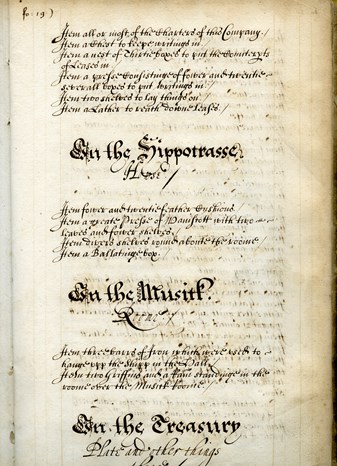 fo: 19:)
Item all or most of the Charters of this Company /
Item a Chest to keepe writings in
Item a nest of Thirtie boxes to put the Counterpts
of Leases in
Item a presse Consistinge of fower and twentie
severall boxes to put writings in /
Item two shelves to lay things on /
Item a Lather to reach downe leases. /
In the Hippocrasse
House /
Item fower and twentie feather Cushions /
Item a greate Presse of Wainscott with two
leaves and fower shelves
Item divers shelves round aboute the roome
Item a Ballatinge box.
In the Musick
Roome /
Item three barrs of Iron which were used to
hange upp the shipp in the Hall
Item two Griffins and a standinge in the
roome over the Musick roome
In the Treasury
Plate and other things